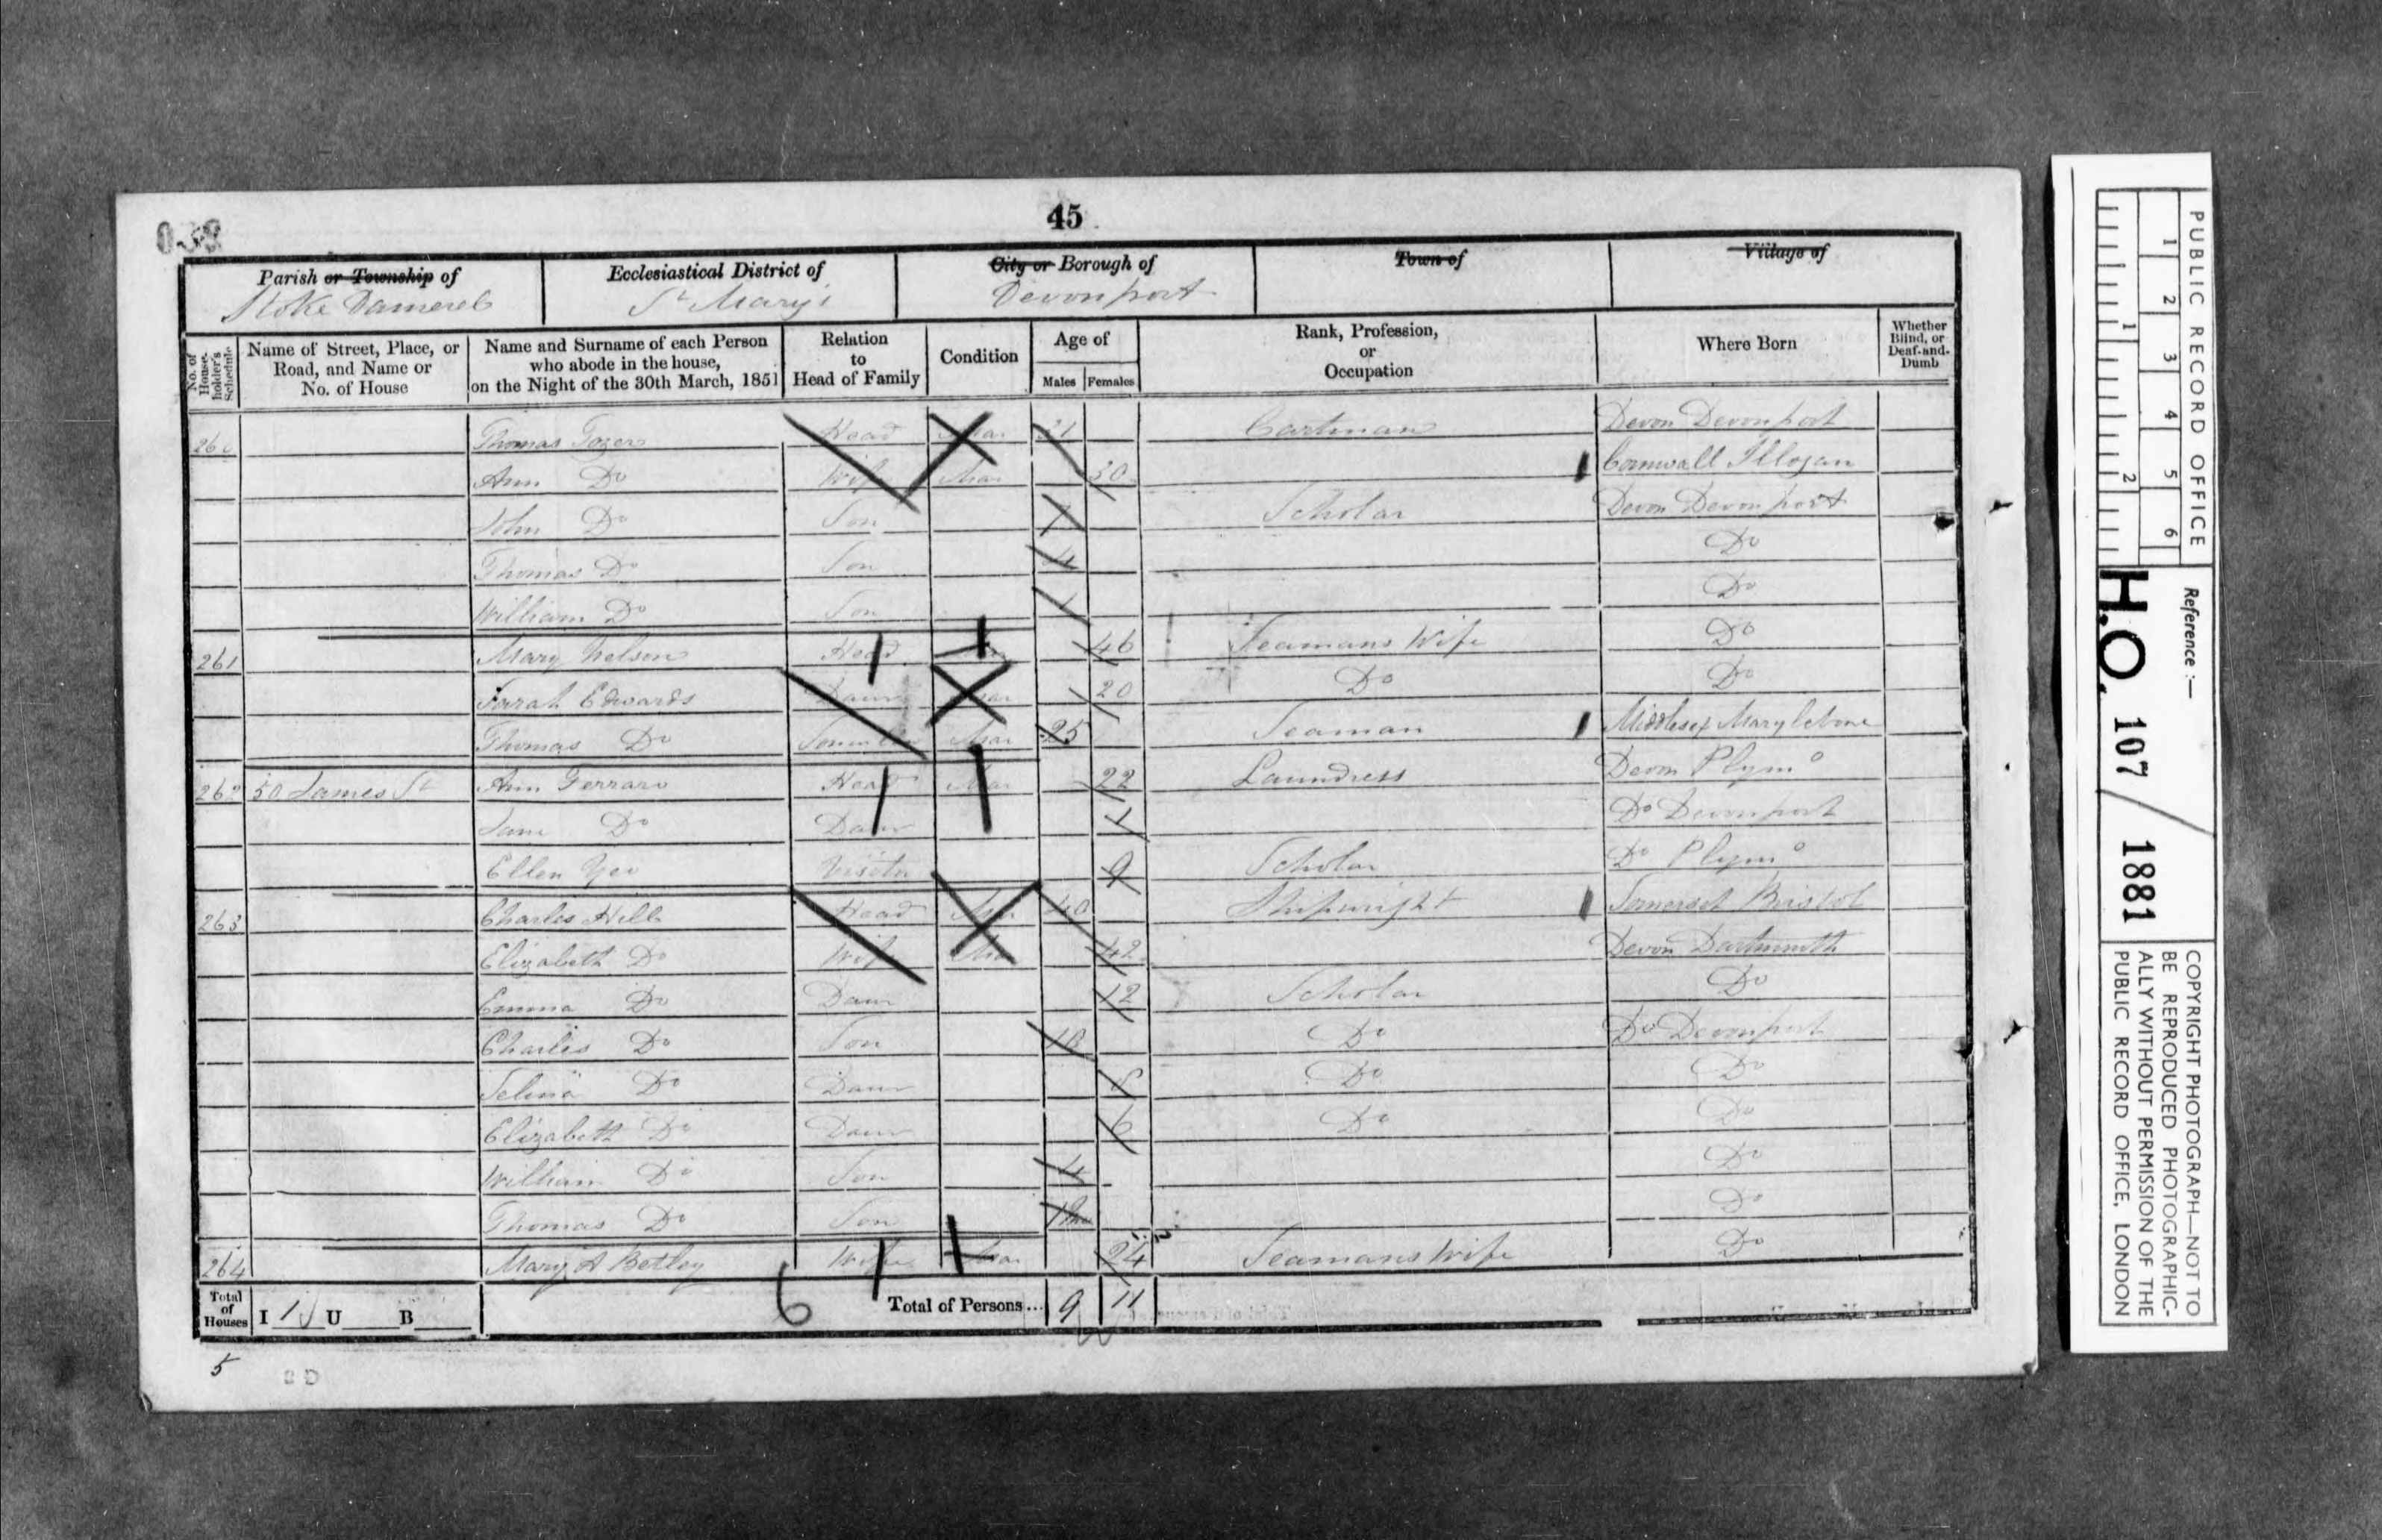 45
Parish or Township of
Stoke Damerel
Ecclesiastical District of
St Mary's
City or Borough of
Devonport
Town of
Village of
No. of House-holder's Schedule
Name of Street, Place, or Road, and Name or No. of House
Name and Surname of each Person who abode in the house, on the Night of the 30th March, 1851
Relation to Head of Family
Condition
Age of
Males
Females
Rank, Profession, or Occupation
Where Born
Whether Blind, or Deaf-and-Dumb
260 Thomas Tozer Head Mar 31 Cartman Devon Devonport
Ann Do Wife Mar 30 Cornwall Illogan
John Do Son 7 Scholar Devon Devonport
Thomas Do Son 4 Do
William Do Son 1 Do
261 Mary Nelson Head 46 Seamans Wife Do
Sarah Edwards Daur Mar 20 Do Do
Thomas Do Mar 25 Seaman Middlesex Marylebone
262 50 James St Ann Ferraro Head Mar 22 Laundress Devon Plymo
Jane Do Daur 1 Do Devonport
Ellen Yeo Visitor 9 Scholar Do Plymo
263 Charles Hill Head Mar 40 Shipwright Somerset Bristol
Elizabeth Do Wife Mar 42 Devon Dartmouth
Emma Do Daur 12 Scholar Do
Charles Do Son 10 Do Do Devonport
Selina Do Daur 8 Do Do
Elizabeth Do Daur 6 Do Do
William Do Son 4 Do
Thomas Do Son Do
264 Mary A Betley Wife Mar 24 Seamans Wife Do
Total of Houses I 1 U B
6
Total of Persons... 9 11
5
PUBLIC RECORD OFFICE
1 2 3 4 5 6
1 2
Reference :—
H.O. 107 / 1881
COPYRIGHT PHOTOGRAPH—NOT TO
BE REPRODUCED PHOTOGRAPHIC-
ALLY WITHOUT PERMISSION OF THE
PUBLIC RECORD OFFICE, LONDON